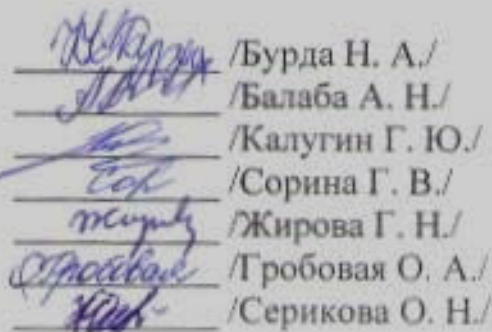 /Бурда Н. А./
/Балаба А. Н./
/Калугин Г. Ю./
/Сорина Г. В./
/Жирова Г. Н./
/Гробовая О. А./
/Серикова О. Н./